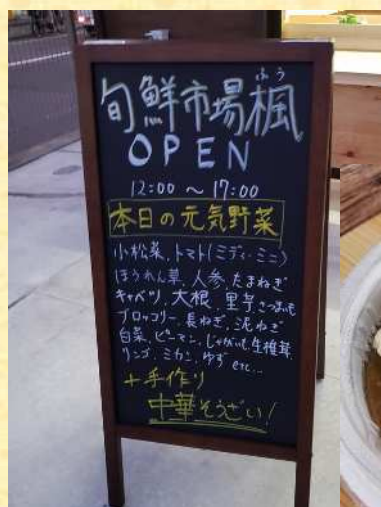 ふう
旬鮮市場楓
OPEN
12:00 ～ 17:00
本日の元気野菜
小松菜、トマト(ミディ・ミニ)
ほうれん草、人参、たまねぎ
キャベツ、大根、里芋、さつまいも
ブロッコリー、長ねぎ、泥ねぎ
白菜、ピーマン、じゃがいも、生椎茸
リンゴ、ミカン、ゆず etc...
+手作り
中華そうざい!